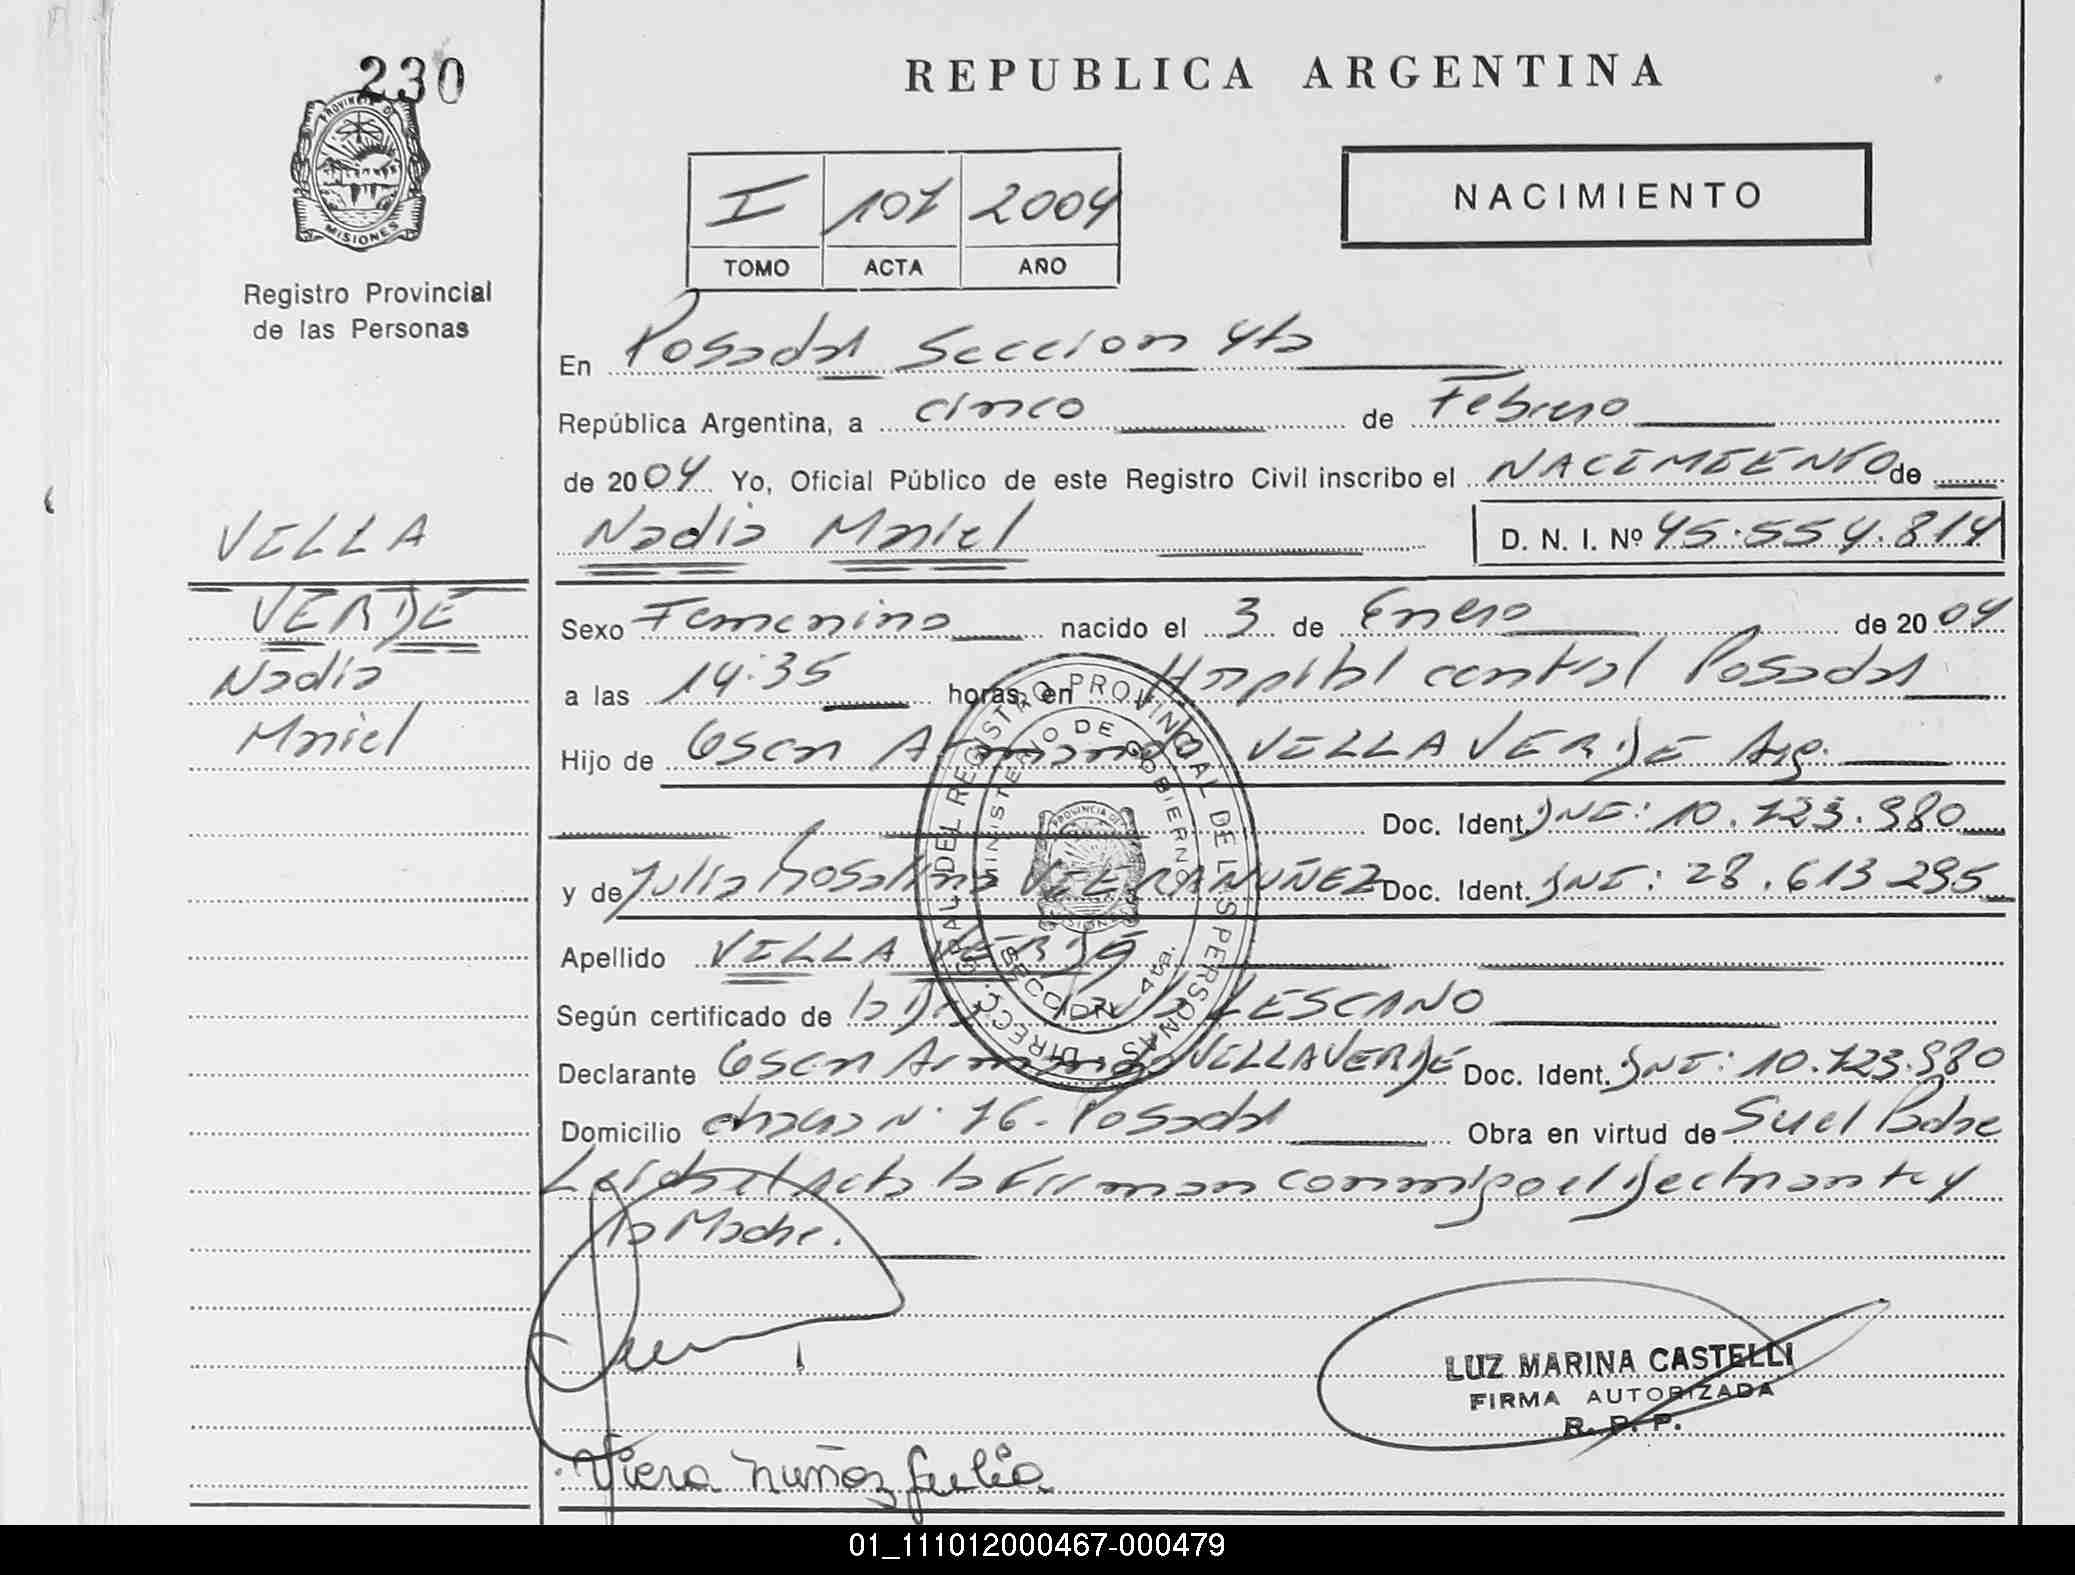 230
REPUBLICA ARGENTINA
PROVINCIA DE
MISIONES
Registro Provincial
de las Personas
I 107 2004
TOMO ACTA AÑO
NACIMIENTO
En Posadas Seccion 4ta
República Argentina, a cinco de Febrero
de 2004 Yo, Oficial Público de este Registro Civil inscribo el NACIMIENTO de
Nadia Mariel D. N. I. Nº 45.554.814
VILLA
VERDE
Nadia
Mariel
Sexo Femenino nacido el 3 de Enero de 2004
a las 14:35 horas, en Hospital central Posadas
Hijo de Oscar Armando VILLAVERDE Arg.
Doc. Ident. DNI: 10.723.980
y de Julia Rosalina VIERA NUÑEZ Doc. Ident. DNI: 28.613.295
Apellido VILLA VERDE
Según certificado de la LESCANO
Declarante Oscar Armando VILLAVERDE Doc. Ident. DNI: 10.723.980
Domicilio chacra N° 76 - Posadas Obra en virtud de Su el Padre
Leida el acta la Firman conmigo el Declarante y
la Madre.
DIRECC. GRAL. DEL REGISTRO PROVINCIAL DE LAS PERSONAS
MINISTERIO DE GOBIERNO
SECCION 4ta.
LUZ MARINA CASTELLI
FIRMA AUTORIZADA
R. P. P.
Viera Nuñez Julia
01_111012000467-000479